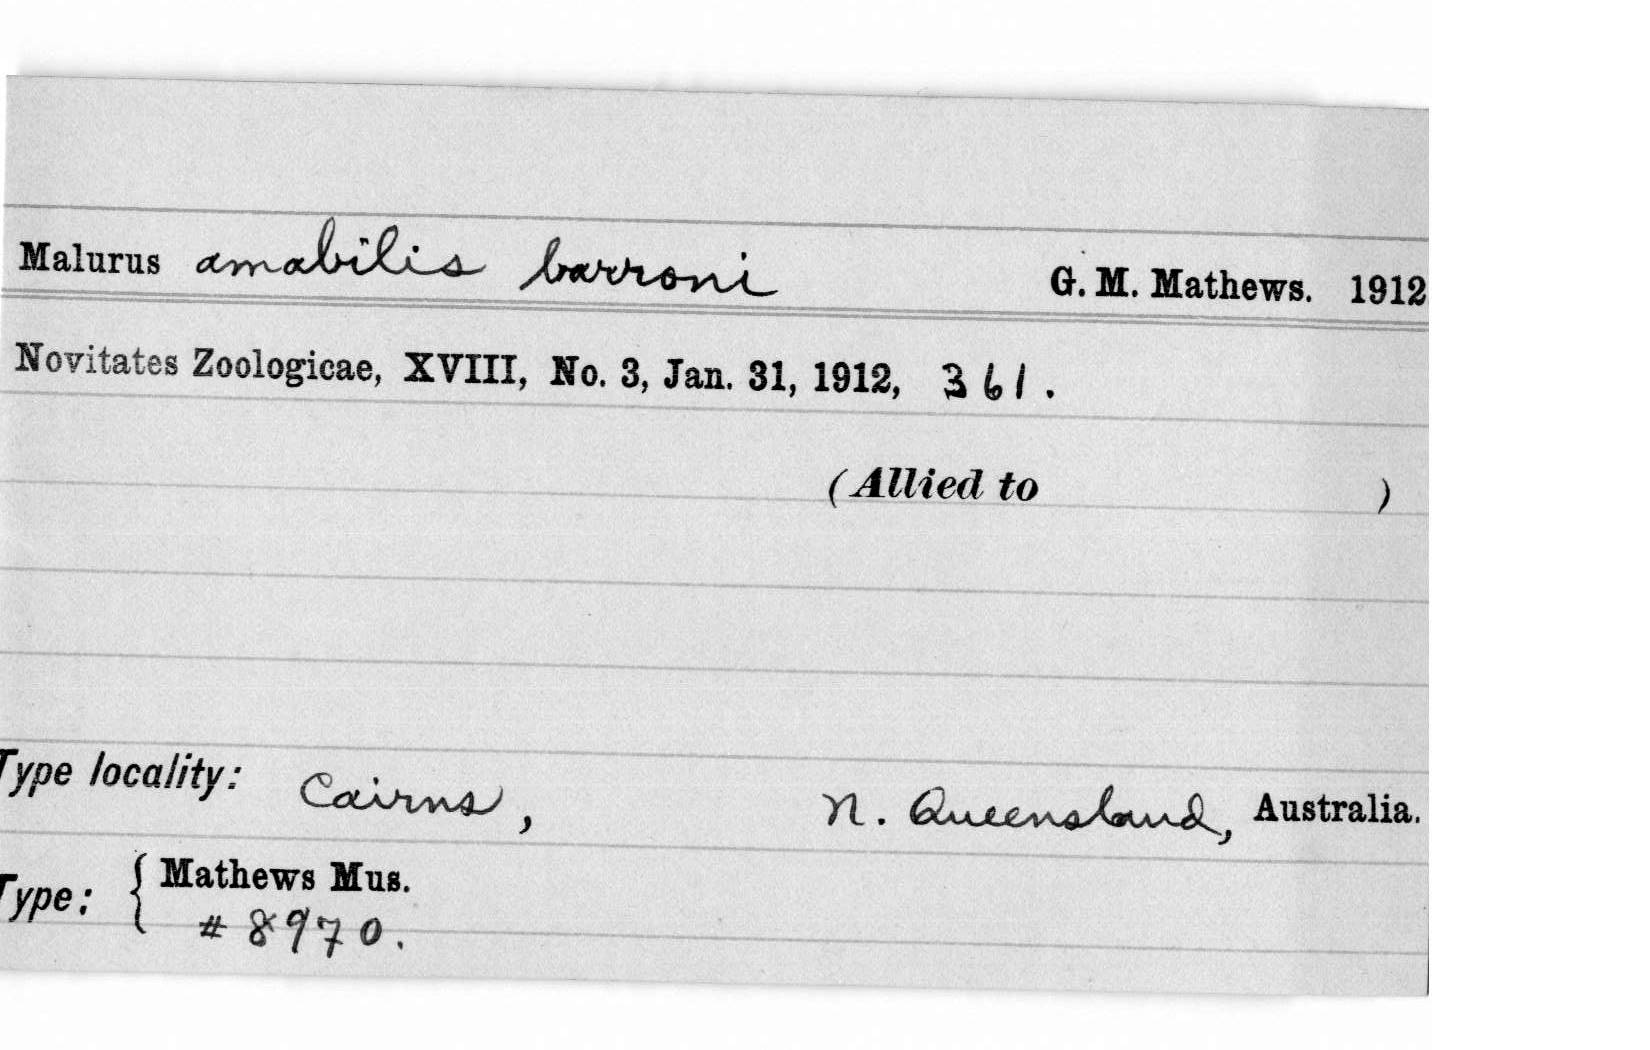 Malurus amabilis barroni G. M. Mathews. 1912
Novitates Zoologicae, XVIII, No. 3, Jan. 31, 1912, 361.
(Allied to )
Type locality: Cairns, N. Queensland, Australia.
Type: { Mathews Mus.
# 8970.